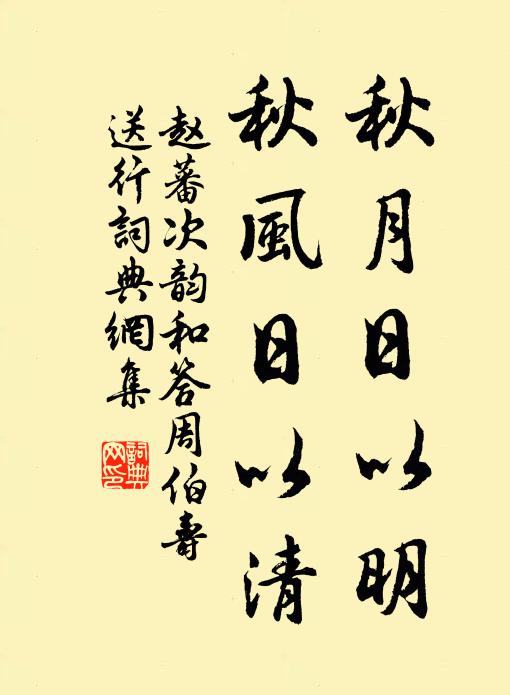 秋月日以明
秋風日以清
赵蕃次韵和答周伯壽
送行詞典網集
詞典網印